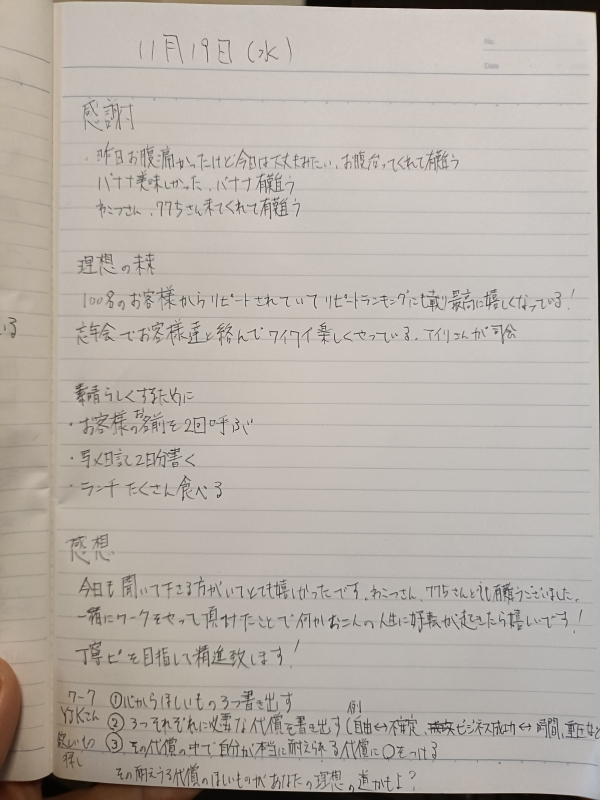 No.
Date
11月19日(水)
感謝
・昨日お腹痛かったけど今日は大丈夫みたい、お腹治ってくれて有難う
バナナ美味しかった、バナナ有難う
ねこつさん、775さん来てくれて有難う
理想の未来
100名のお客様からリピートされていてリピートランキングにも載り最高に嬉しくなっている!
忘年会でお客様達と絡んでワイワイ楽しくやっている、アイリさんが司会
素晴らしくするために
・お客様のお名前を2回呼ぶ
・写メ日記2日分書く
・ランチたくさん食べる
感想
今日も聞いて下さる方がいてとても嬉しかったです。ねこつさん、775さんとても有難うございました。
一緒にワークをやって頂けたことで何かお二人の人生に好転が起きたら嬉しいです!
丁寧ピを目指して精進致します!
ワーク ①心からほしいもの3つ書き出す
YJKさん ②3つそれぞれに必要な代償を書き出す(例 自由↔不安定、ビジネス成功↔時間、重圧など
欲しいもの ③その代償の中で自分が本当に耐えられる代償に○をつける
探し その耐えうる代償のほしいものがあなたの理想の道かもよ?
いる